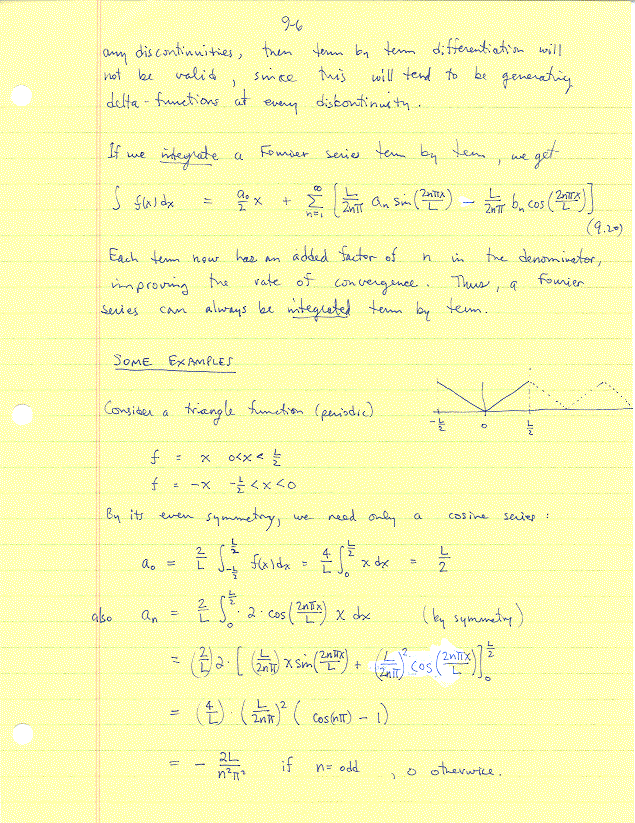 9-6
any discontinuities, then term by term differentiation will
not be valid, since this will tend to be generating
delta-functions at every discontinuity.
If we integrate a Fourier series term by term, we get
∫ f(x) dx = a₀/2 x + Σ_{n=1}^{∞} [ L/2nπ aₙ sin(2nπx/L) − L/2nπ bₙ cos(2nπx/L) ]
(9.20)
Each term now has an added factor of n in the denominator,
improving the rate of convergence. Thus, a Fourier
series can always be integrated term by term.
SOME EXAMPLES
Consider a triangle function (periodic)
-L/2 0 L/2
f = x 0<x<L/2
f = -x -L/2<x<0
By its even symmetry, we need only a cosine series:
a₀ = 2/L ∫_{-L/2}^{L/2} f(x)dx = 4/L ∫_0^{L/2} x dx = L/2
also aₙ = 2/L ∫_0^{L/2} · 2 · cos(2nπx/L) x dx (by symmetry)
= (2/L) 2 · [ (L/2nπ) x sin(2nπx/L) + (L/2nπ)² cos(2nπx/L) ]_0^{L/2}
= (4/L) · (L/2nπ)² ( cos(nπ) − 1 )
= − 2L/n²π² if n = odd , 0 otherwise.